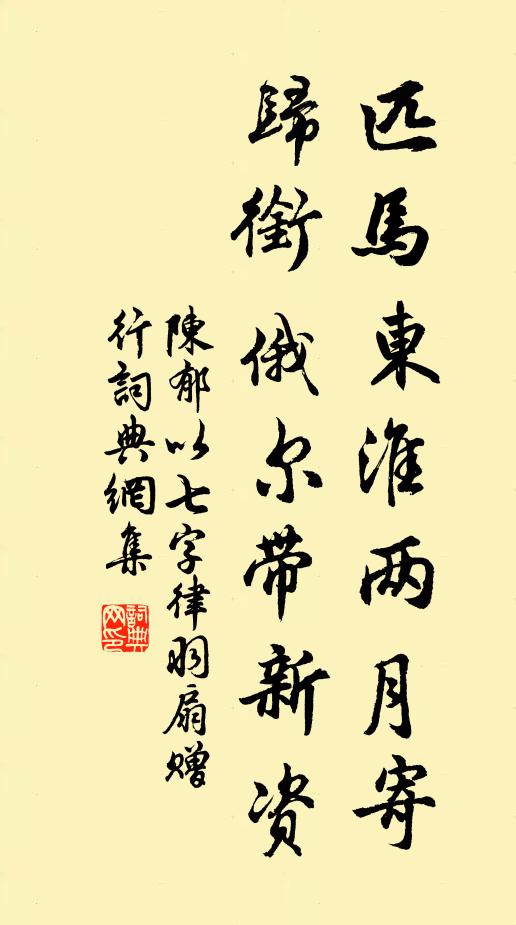 匹馬東淮两月寄
歸銜俄尔带新资
陳郁以七字律羽扇赠
行詞典網集
詞典網印